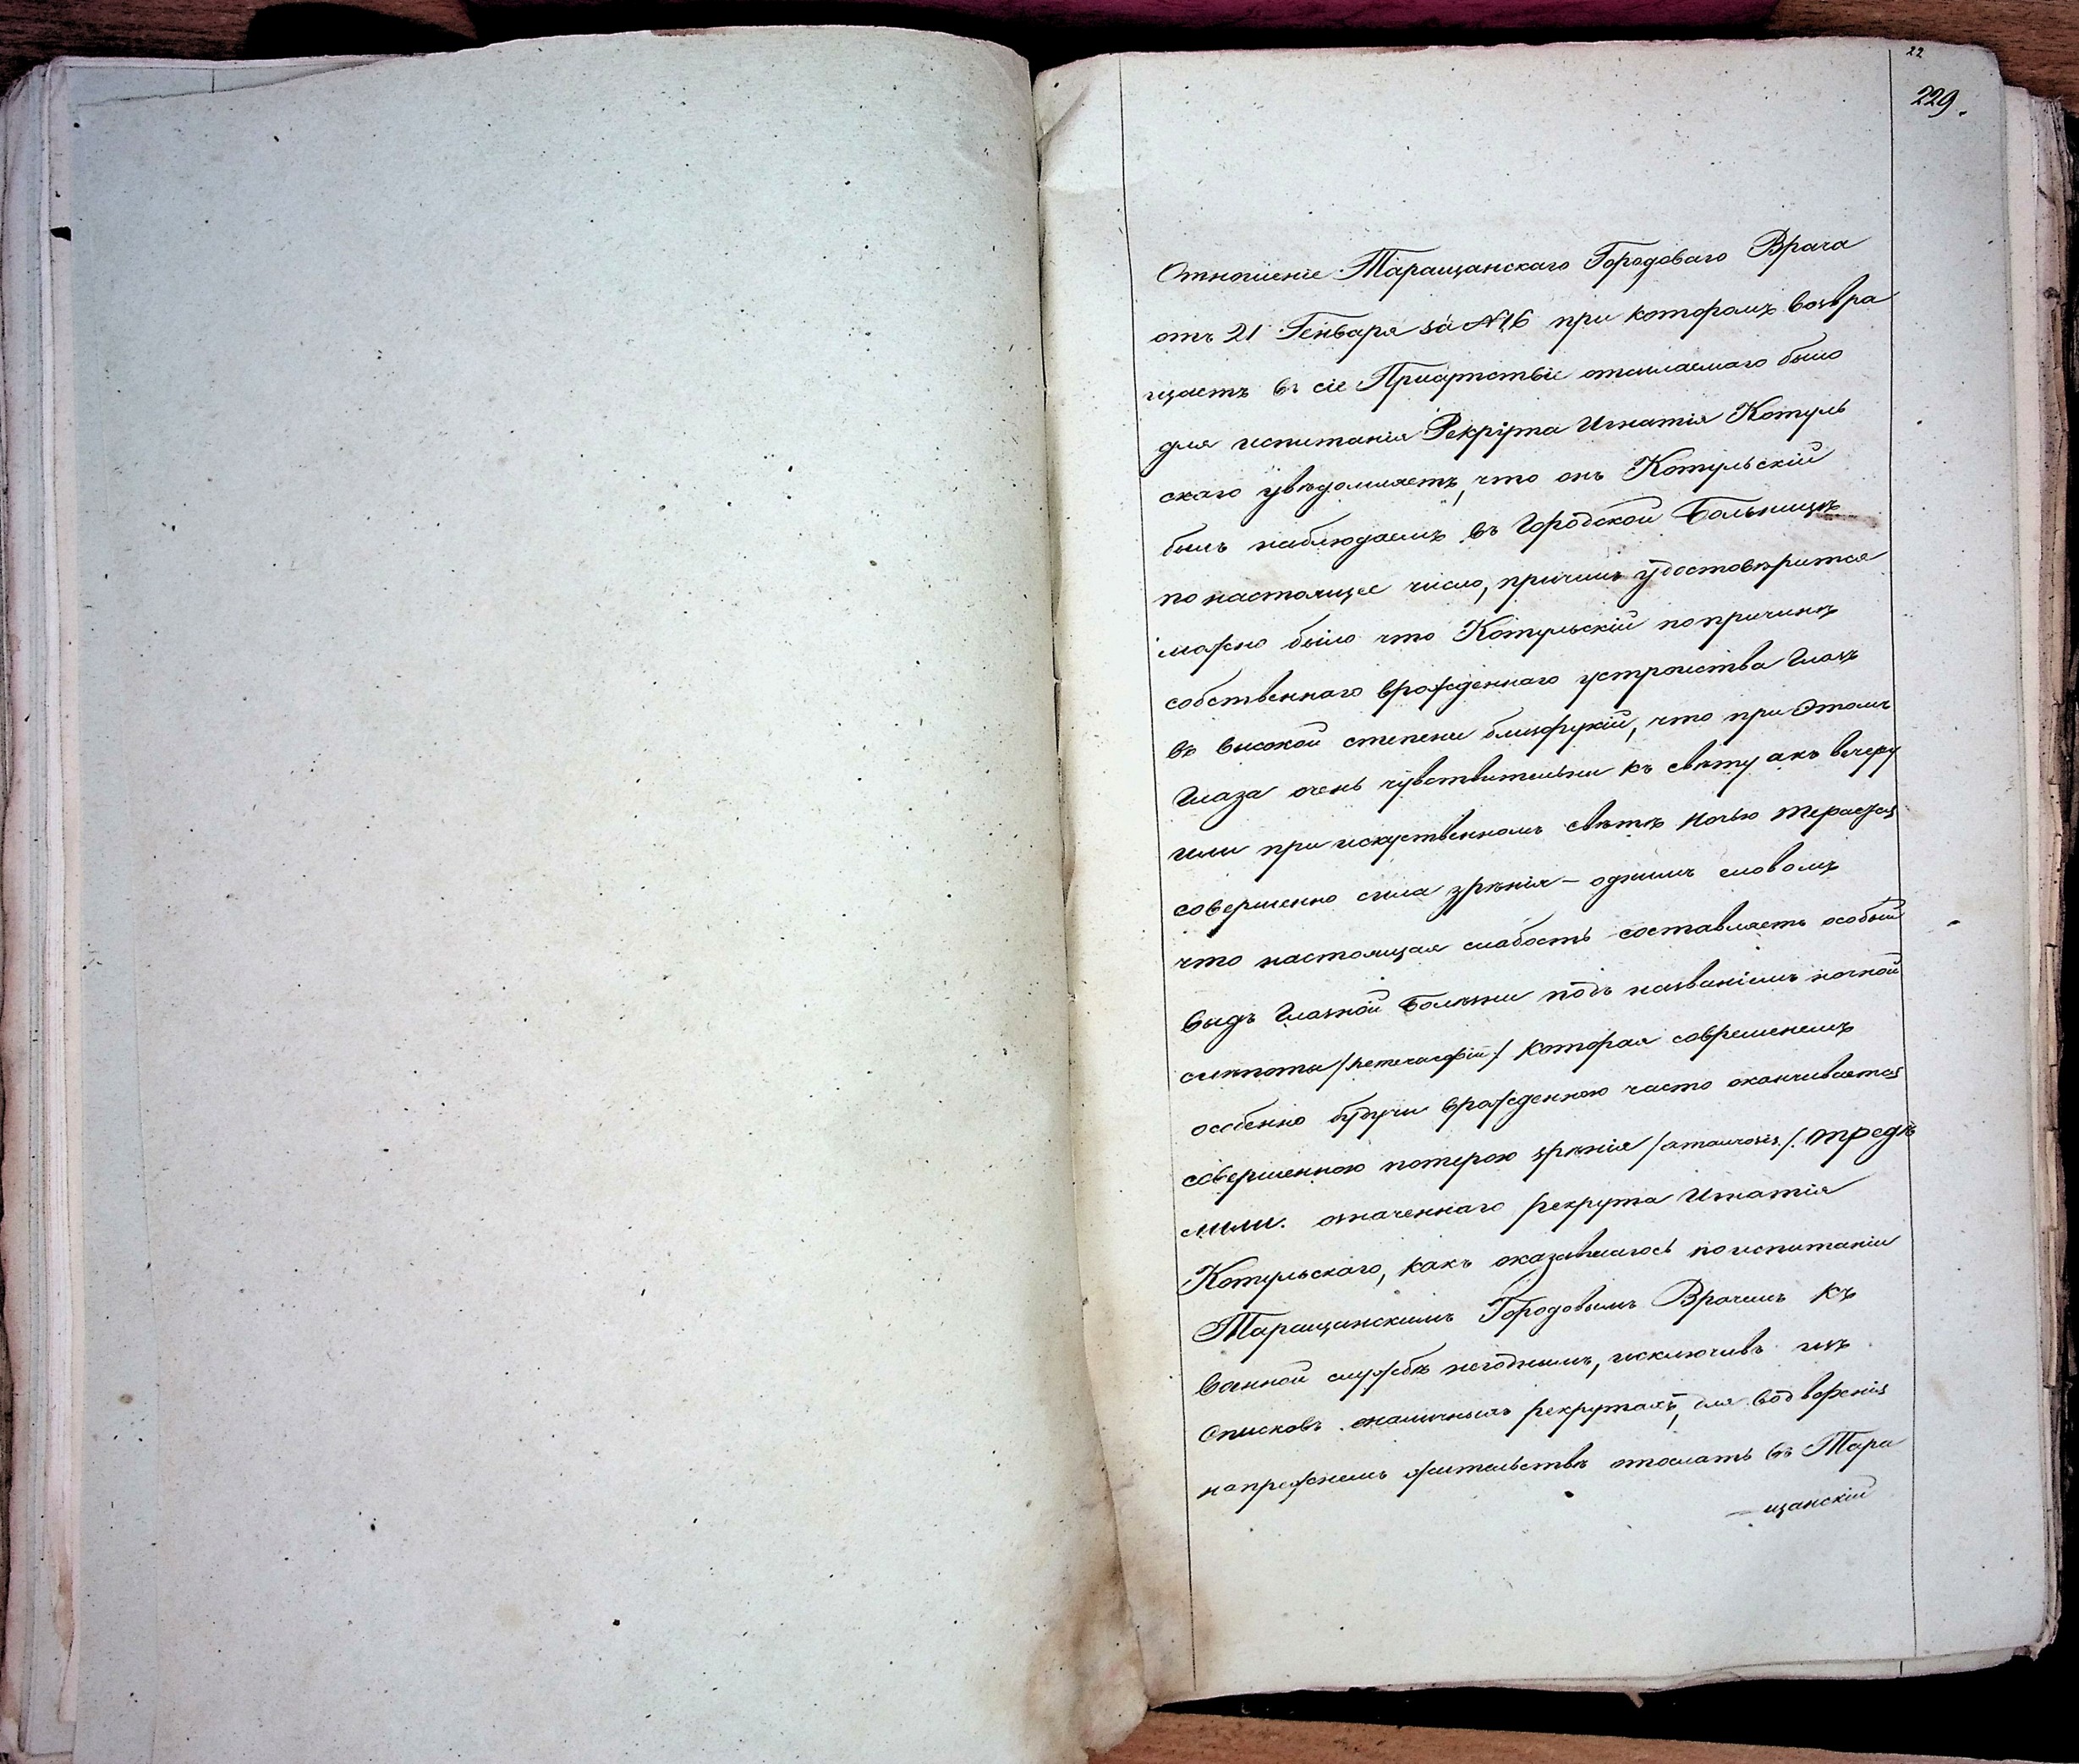 22
229.
Отношеніе Таращанскаго Городоваго Врача
отъ 21 Генваря за №16 при которомъ возвра
щаетъ въ сіе Присутствіе отсылаемаго было
для испытанія Рекрута Игнатія Котуль
скаго увѣдомляетъ, что онъ Котульскій
былъ наблюдаемъ въ Городской Больницѣ
по настоящее число, причемъ удостовѣрится
можно было что Котульскій по причинѣ
собственнаго врожденнаго устроиства Глазъ
въ высокой степени близорукій, что при этомъ
Глаза очень чувствительны къ свѣту а къ вечеру
или при искуственномъ свѣтѣ ночью теряется
совершенно сила зрѣнія – однимъ словомъ
что настоящая слабость составляетъ особый
видъ Глазной Болѣзни подъ названіемъ ночной
слѣпоты которая современемъ
особенно будучи врожденною часто оканчивается
совершенною потерею зрѣнія /amaurosis/.
означеннаго рекрута Игнатія
Котульскаго, какъ оказавшагось по испытаніи
Таращанскимъ Городовымъ Врачемъ къ
Военной службѣ негоднымъ, исключивъ изъ
Списковъ оналичныхъ рекрутахъ, для водворенія
на прежнемъ жительствѣ отослать въ Тара
щанскій